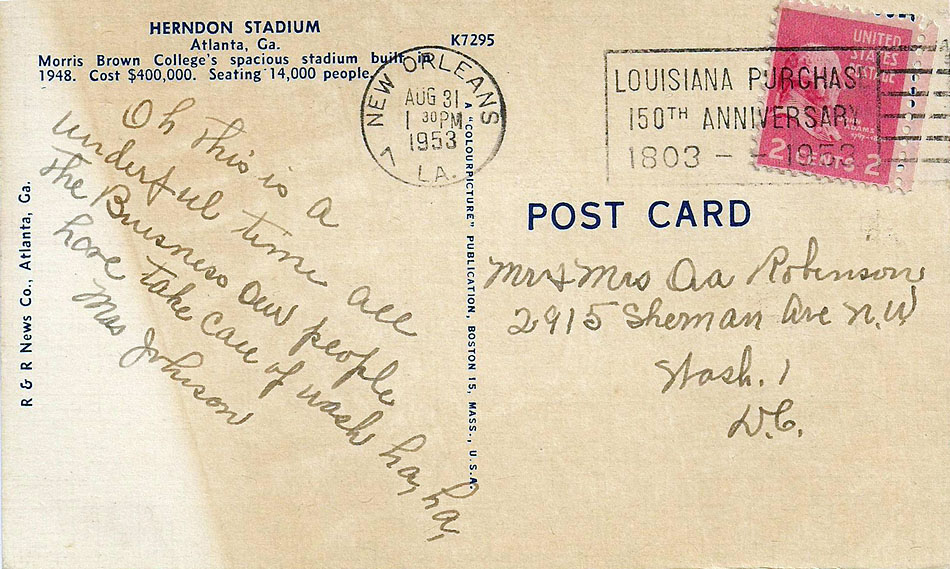 HERNDON STADIUM
Atlanta, Ga.
Morris Brown College's spacious stadium built in
1948. Cost $400,000. Seating 14,000 people.
K7295
Oh this is a
wnderful time all
the Buisness our people
have take care of wash ha, ha,
Mrs Johnson
R & R News Co., Atlanta, Ga.
A "COLOURPICTURE" PUBLICATION, BOSTON 15, MASS., U.S.A.
NEW ORLEANS
AUG 31
1 30PM
1953
LA.
LOUISIANA PURCHASE
150TH ANNIVERSARY
1803 - 1953
UNITED
STATES
POSTAGE
ADAMS
2 CENTS 2
POST CARD
Mr & Mrs Oa Robinson
2915 Sherman Ave N.W
Wash. 1
D.C.